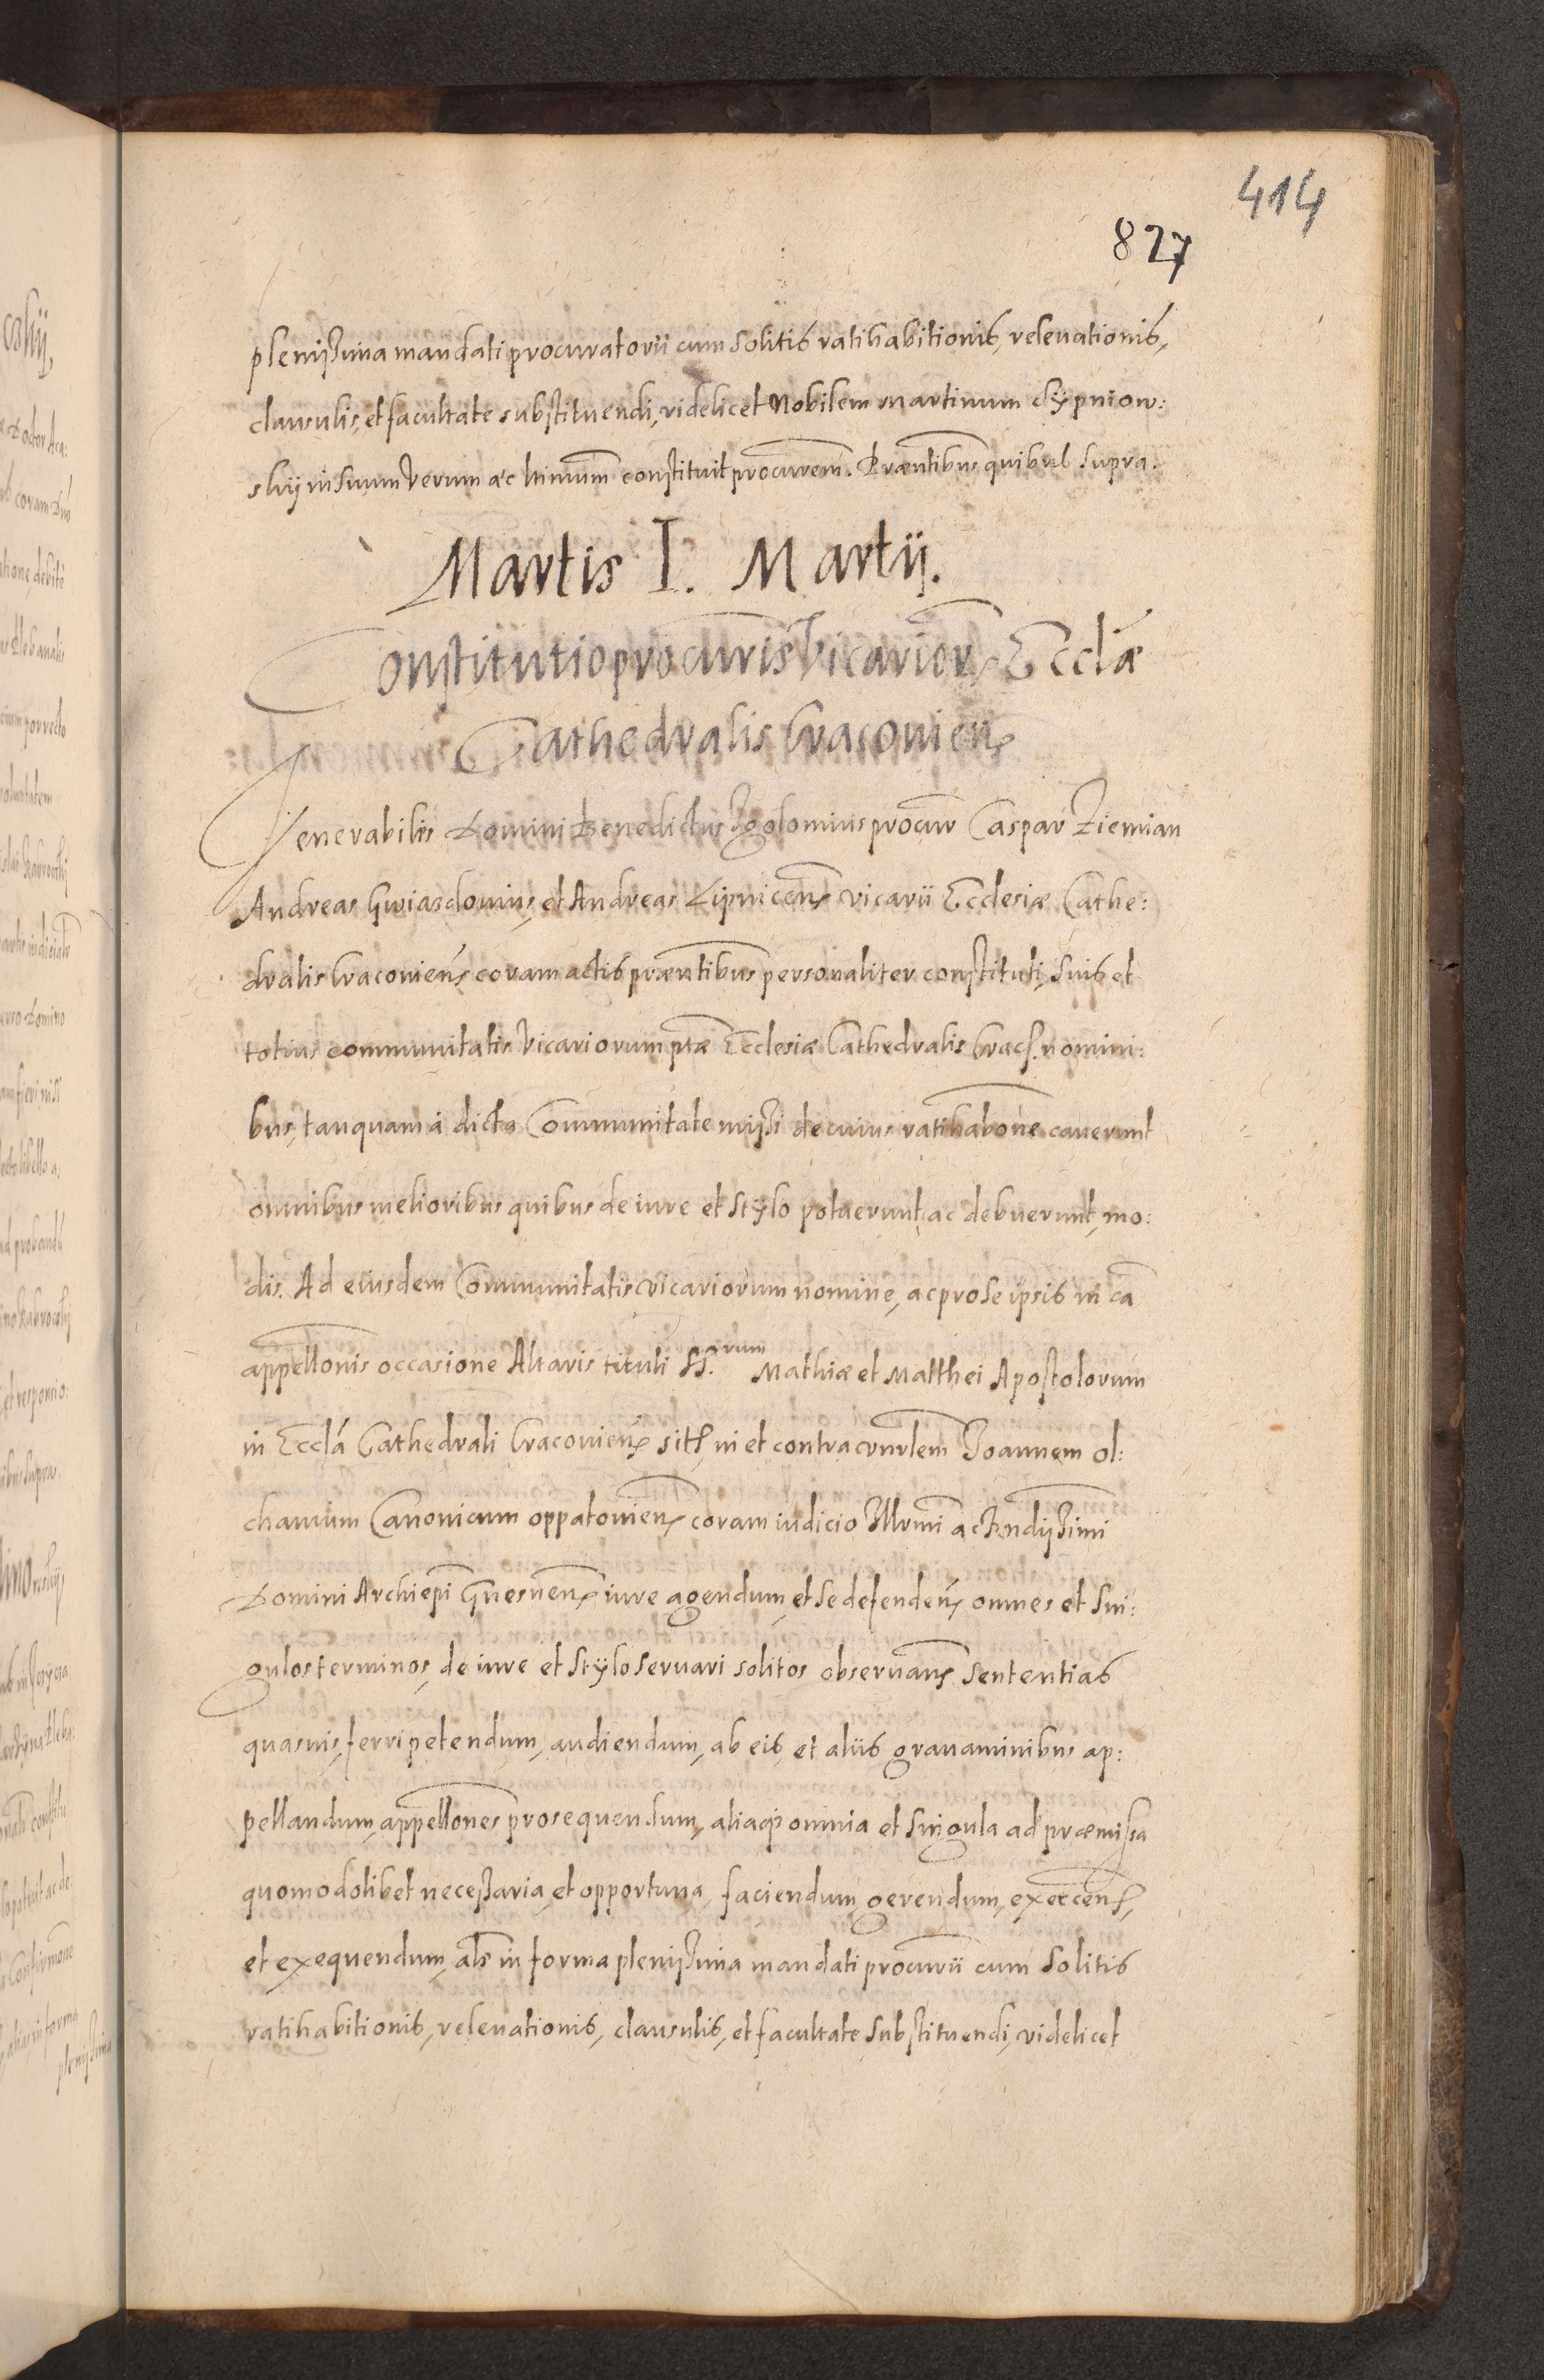 414
827
plenissima mandati procuratorii cum solitis ratihabitionis, relevationis,
clausulis, et facultate substituendi, videlicet Nobilem Martinum
skij in suum verum ac ltimum constituit procurem. Præntibus quibus supra.
Martis I. Martij.
Constitutio procuris Vicarior Ecclæ
Cathedralis Cracovien
Venerabiles Domini Benedictus Igolomius procur Caspar Ziemian
Andreas Gwiasdonius, et Andreas Lipnicens vicarii Ecclesiæ Cathe:
dralis Cracoviens coram actis præntibus personaliter constituti, suis et
totius communitatis Vicariorum ptæ Ecclesiæ Cathedralis Crac. nomini:
bus, tanquam à dicta Communitate missi de cuius ratihabone caverunt
omnibus melioribus quibus de iure et stÿlo potuerunt ac debuerunt, mo:
dis. Ad eiusdem Communitatis vicariorum nomine, ac pro se ipsis in ca
appellonis occasione Altaris tituli SS.rum Mathiæ et Matthei Apostolorum
in Ecclâ Cathedrali Cracovien sit, in et contra vnrlem Joannem ol:
chavium Canonicum oppatovien coram iudicio Illrmi ac Rndissimi
Domini Archiepi Gnesnen iure agendum, et se defenden omnes et sin:
gulos terminos, de iure et stÿlo servari solitos observan sententias
quasvis, ferri petendum, audiendum, ab eis, et aliis gravaminibus ap:
pellandum, appellones prosequendum, aliaq omnia et singula ad præmissa
quomodolibet necessaria, et opportuna, faciendum, gerendum, exercen,
et exequendum, als in forma plenissima mandati procurii cum solitis
ratihabitionis, relevationis, clausulis, et facultate substituendi, videlicet